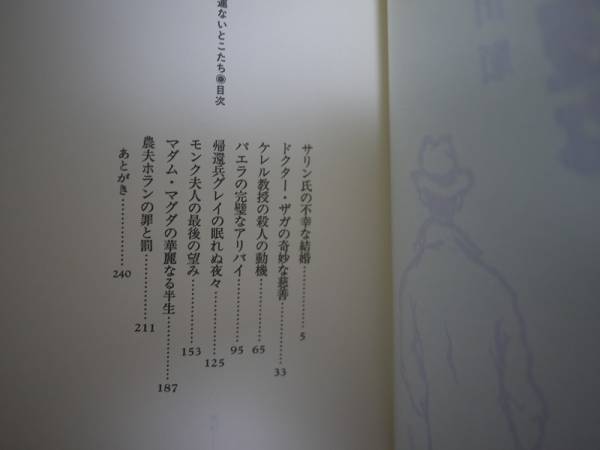 運ないとこたち●目次
サリン氏の不幸な結婚……5
ドクター・ザガの奇妙な慈善……33
ケレル教授の殺人の動機……65
バエラの完璧なアリバイ……95
帰還兵グレイの眠れぬ夜々……125
モンク夫人の最後の望み……153
マダム・マグダの華麗なる半生……187
農夫ホランの罪と罰……211
あとがき……240